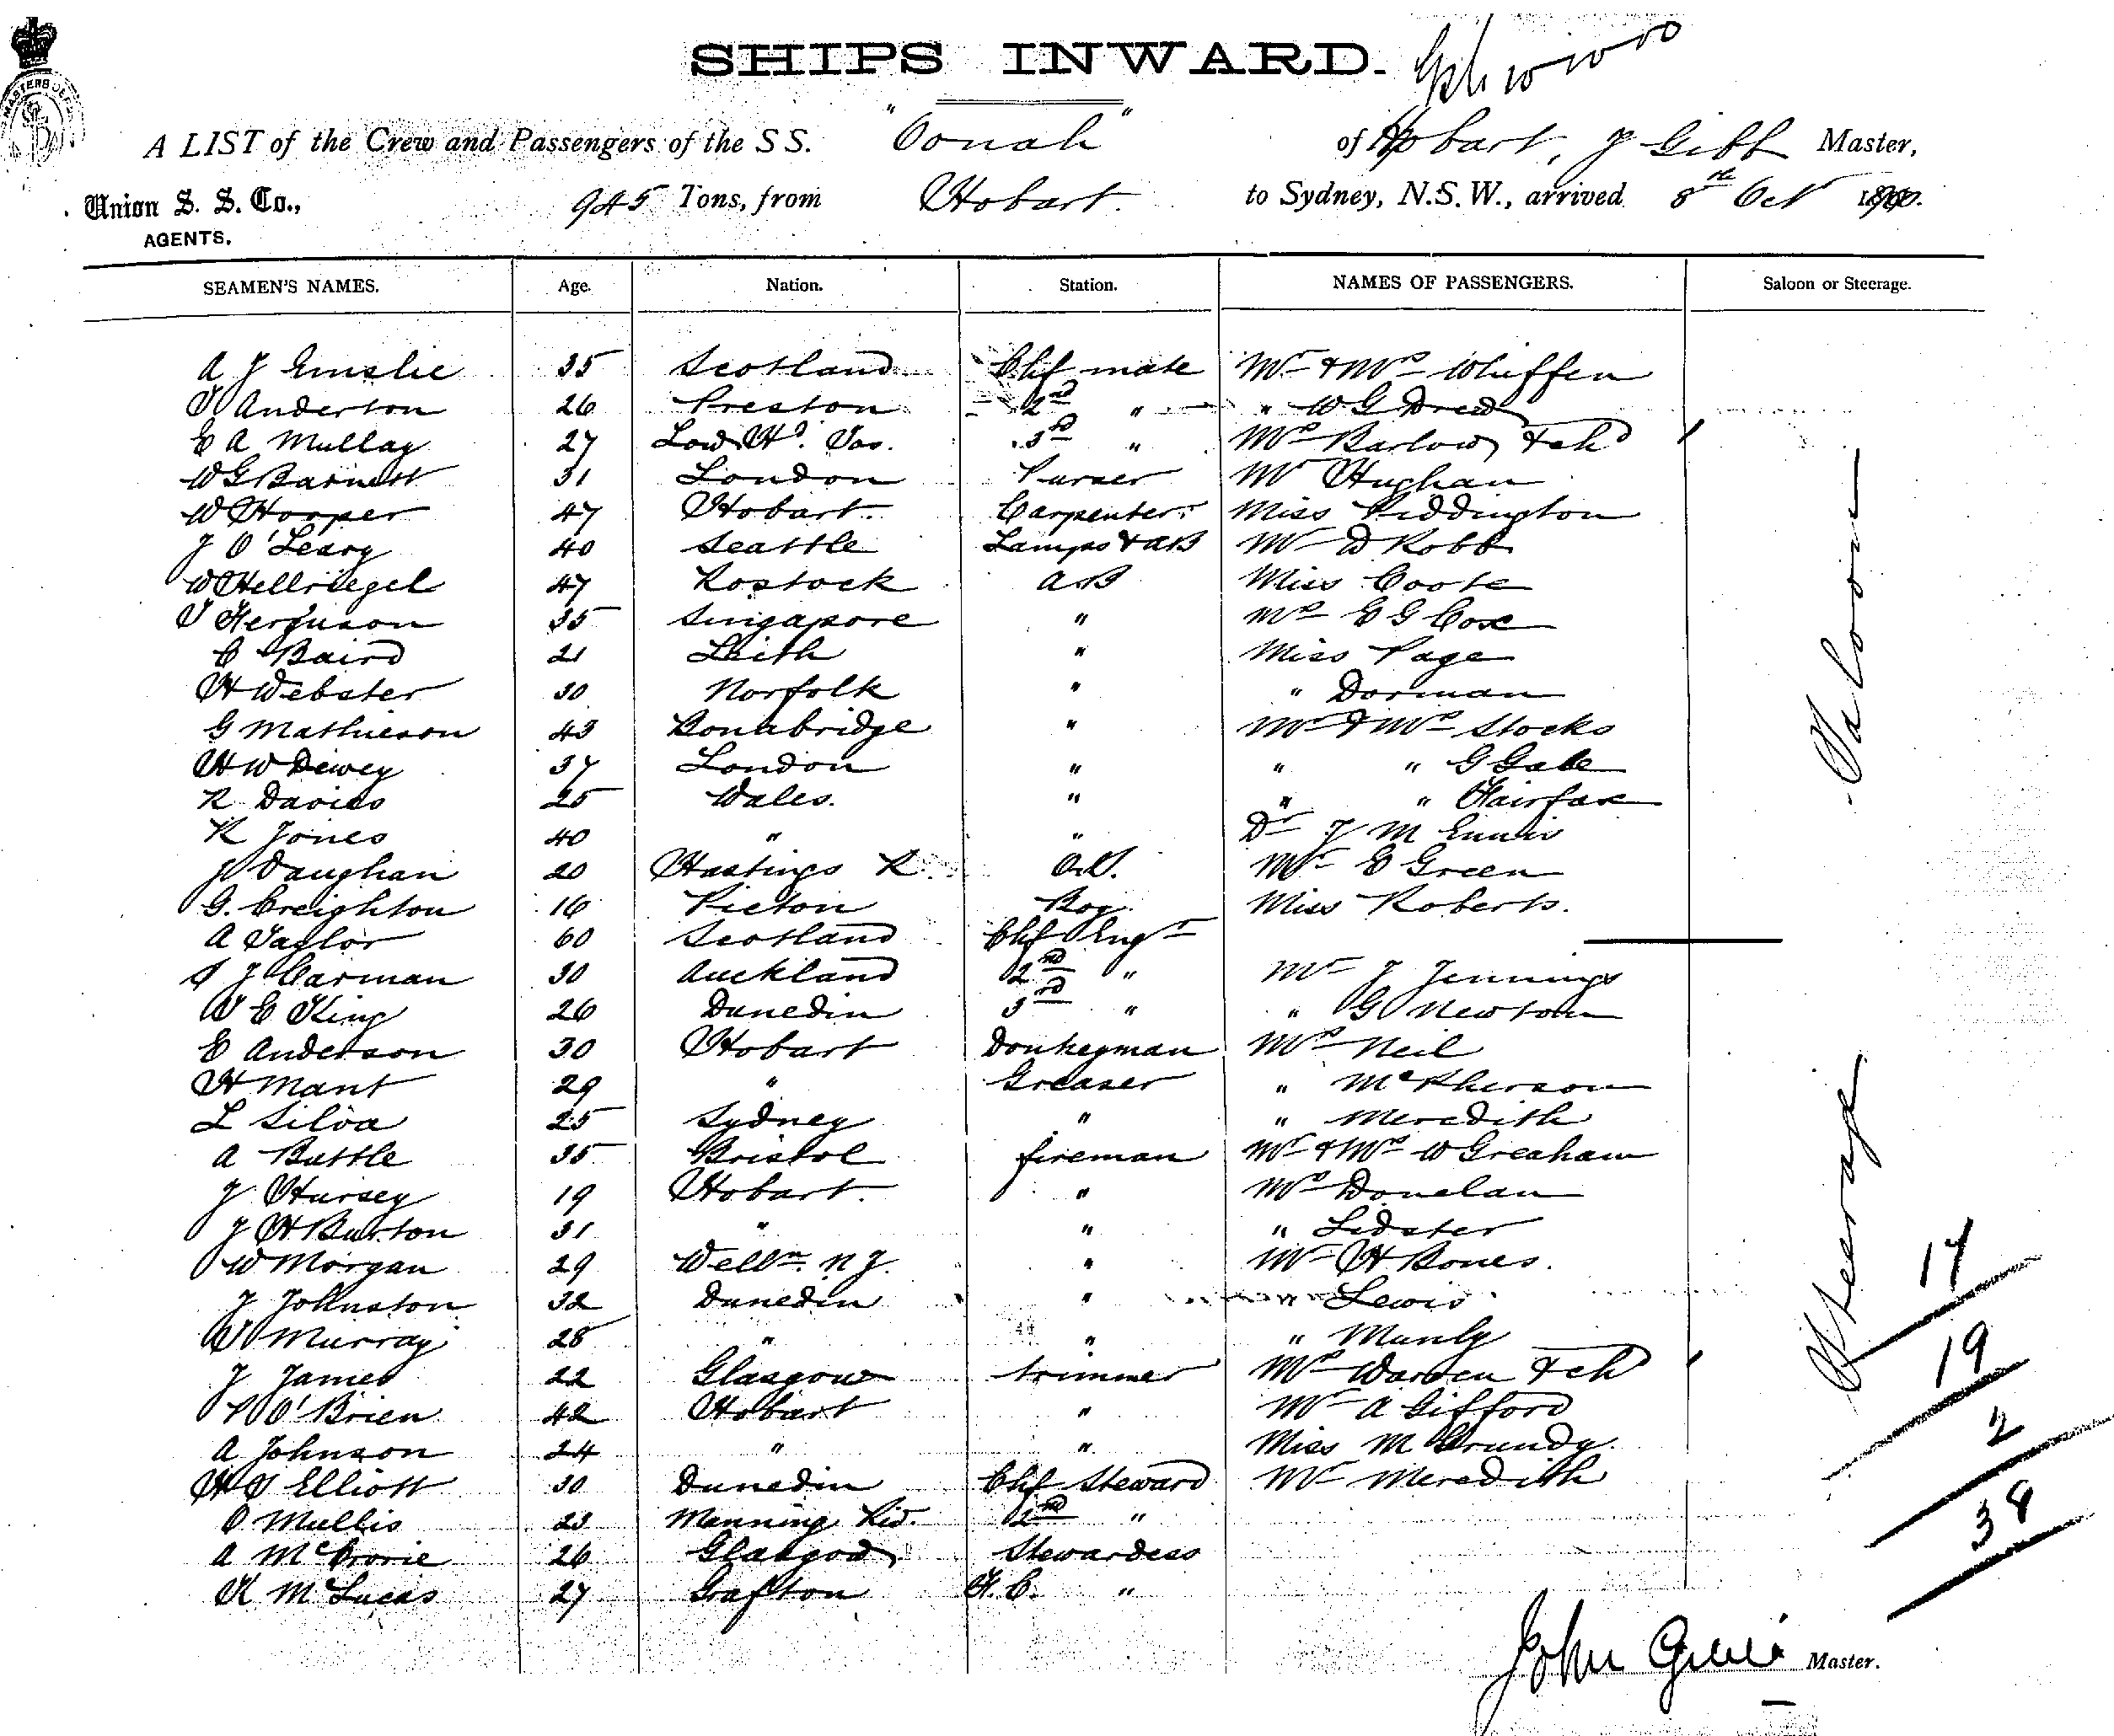 SHIPS INWARD.
A LIST of the Crew and Passengers of the S S. "Oonah" of Hobart, J Gibb Master,
Union S. S. Co., AGENTS. 945 Tons, from Hobart. to Sydney, N.S.W., arrived 8th Oct
SEAMEN'S NAMES. Age. Nation. Station. NAMES OF PASSENGERS. Saloon or Steerage.
A J Emslie 35 Scotland Chf mate Mr & Mrs Whiffen
T Anderton 26 Preston 2nd " " W G Drew
E A Mullay 27 Low Hd. Tas. 3rd " Mrs Barlow & ch
W G Barnett 31 London Purser Mr Hughan
W Hooper 47 Hobart Carpenter Miss Piddington
J O'Leary 40 Seattle Lamps & AB Mr D Robb
W Hellriegel 47 Rostock AB Miss Coote
T Ferguson 35 Singapore " Mrs E G Cox
C Baird 21 Leith " Miss Page
H Webster 30 Norfolk " " Dorman
G Mathieson 43 Bonabridge " Mr & Mrs Stocks
H W Dewey 37 London " " " G Gale
R Davies 25 Wales. " " " Fairfax
R Jones 40 " " Dr J M Ennis
J Vaughan 20 Hastings R. O.S. Mr E Green
G. Creighton 16 Picton Boy Miss Roberts.
Saloon
A Taylor 60 Scotland Chf Engr
J Carman 30 Auckland 2nd " Mr J Jennings
W E King 26 Dunedin 3rd " " G Newton
E Anderson 30 Hobart Donkeyman Mrs Neil
H Mant 29 " Greaser " McPherson
L Silva 25 Sydney " " Meredith
A Buttle 35 Bristol fireman Mr & Mrs W Greaham
J Hursey 19 Hobart. " Mrs Donelan
J H Burton 31 " " " Lidster
W Morgan 29 Welln. N Z. " Mr H Bones.
J Johnston 32 Dunedin " " Lewis
T Murray 28 " " " Munly
J James 22 Glasgow trimmer Mrs Warden & ch
P O'Brien 42 Hobart " Mr A Gifford
A Johnson 24 " " Miss M Grundy
H T Elliott 30 Dunedin Chf Steward Mr Meredith
O Mullis 23 Manning Riv. 2nd "
A McCrorie 26 Glasgow Stewardess
K McLucas 27 Grafton F. C. "
Steerage
17
19
2
38
John Gibb Master.